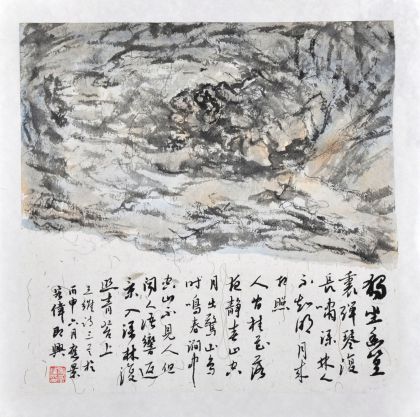 獨坐幽篁
裏彈琴復
長嘯深林人
不知明月來
相照
人閒桂花落
夜靜春山空
月出驚山鳥
時鳴春澗中
空山不見人但
聞人語響返
景入深林復
照青苔上
王維詩三首於
丙申六月
偉即興